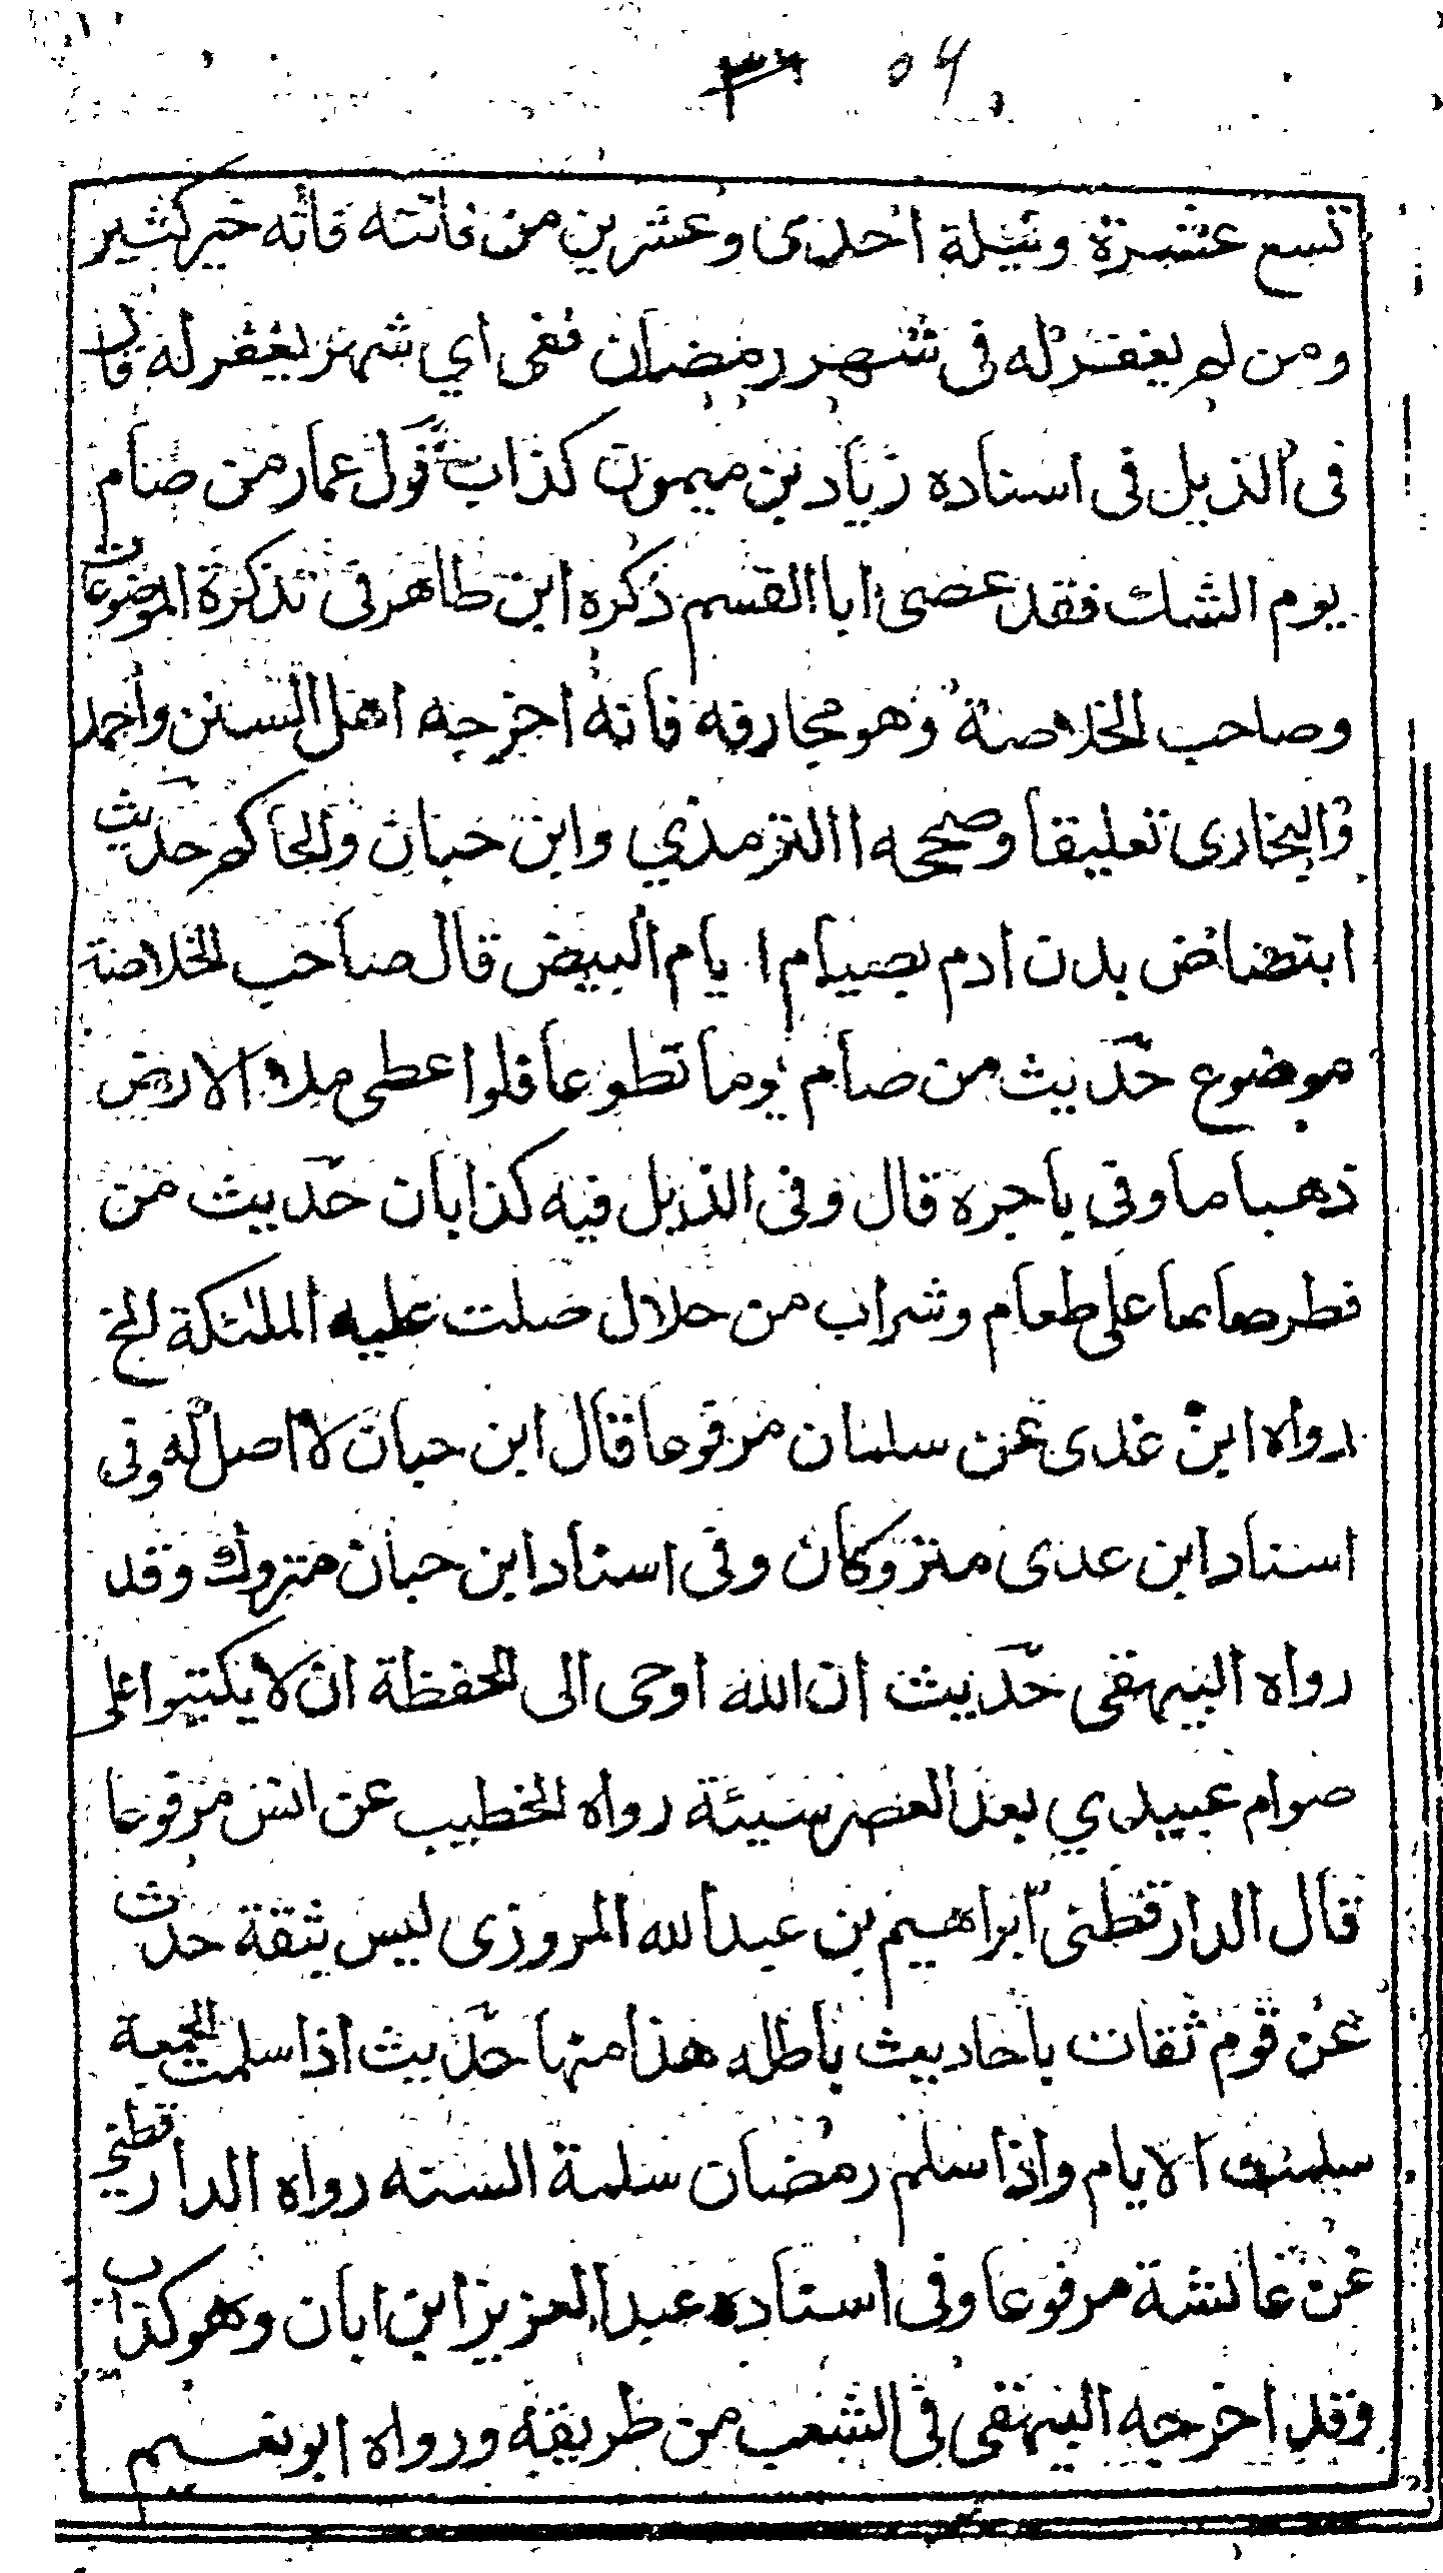 ٣٦ ٥٦
تسع عشرة وليلة احدى وعشرين من فاتته فاته خير كثير
ومن لم يغفر له فى شهر رمضان ففى اي شهر يغفر له قال
فى الذيل فى اسناده زياد بن ميمون كذاب قول عمار من صام
يوم الشك فقد عصى ابا القسم ذكره ابن طاهر فى تذكرة الموضوعات
وصاحب الخلاصة وهو مجازفه فانه اخرجه اهل السنن واحمد
والبخارى تعليقا وصححه االترمذي وابن حبان والحاكم حديث
ابتضاض بدن ادم بصيام ا يام البيض قال صاحب الخلاصة
موضوع حديث من صام يوما تطوعا فلوا عطى ملاء الارض
ذهبا ما وفى باجره قال وفى الذيل فيه كذابان حديث من
فطر صايما على طعام وشراب من حلال صلت عليه الملئكة الخ
رواه ابن عدى عن سلمان مرفوعا قال ابن حبان لا اصل له وفى
اسناد ابن عدى متروكان وفى اسناد ابن حبان متروك وقد
رواه البيهقى حديث ان الله اوحى الى الحفظة ان لا يكتبوا على
صوام عبيدي بعد العصر سيئة رواه الخطيب عن انس مرفوعا
قال الدارقطنى ابراهيم بن عبدالله المروزى ليس بثقة حدث
عن قوم ثقات باحاديث باطله هذا منها حديث اذا سلمت الجمعة
سلمت الايام واذا سلم رمضان سلمة السنه رواه الدارقطنى
عن عائشة مرفوعا وفى اسناده عبد العزيز ابن ابان وهو كذاب
وقد اخرجه البيهقى فى الشعب من طريقه ورواه ابو نعسيم